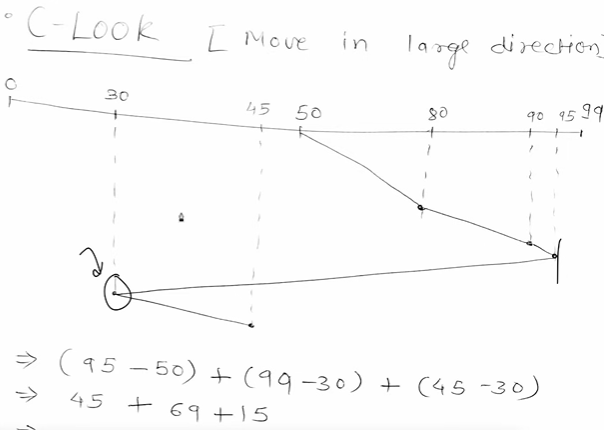 C-LOOK [ Move in large direction]
0 30 45 50 80 90 95 99
⇒ (95 - 50) + (99 - 30) + (45 - 30)
⇒ 45 + 69 + 15
⇒